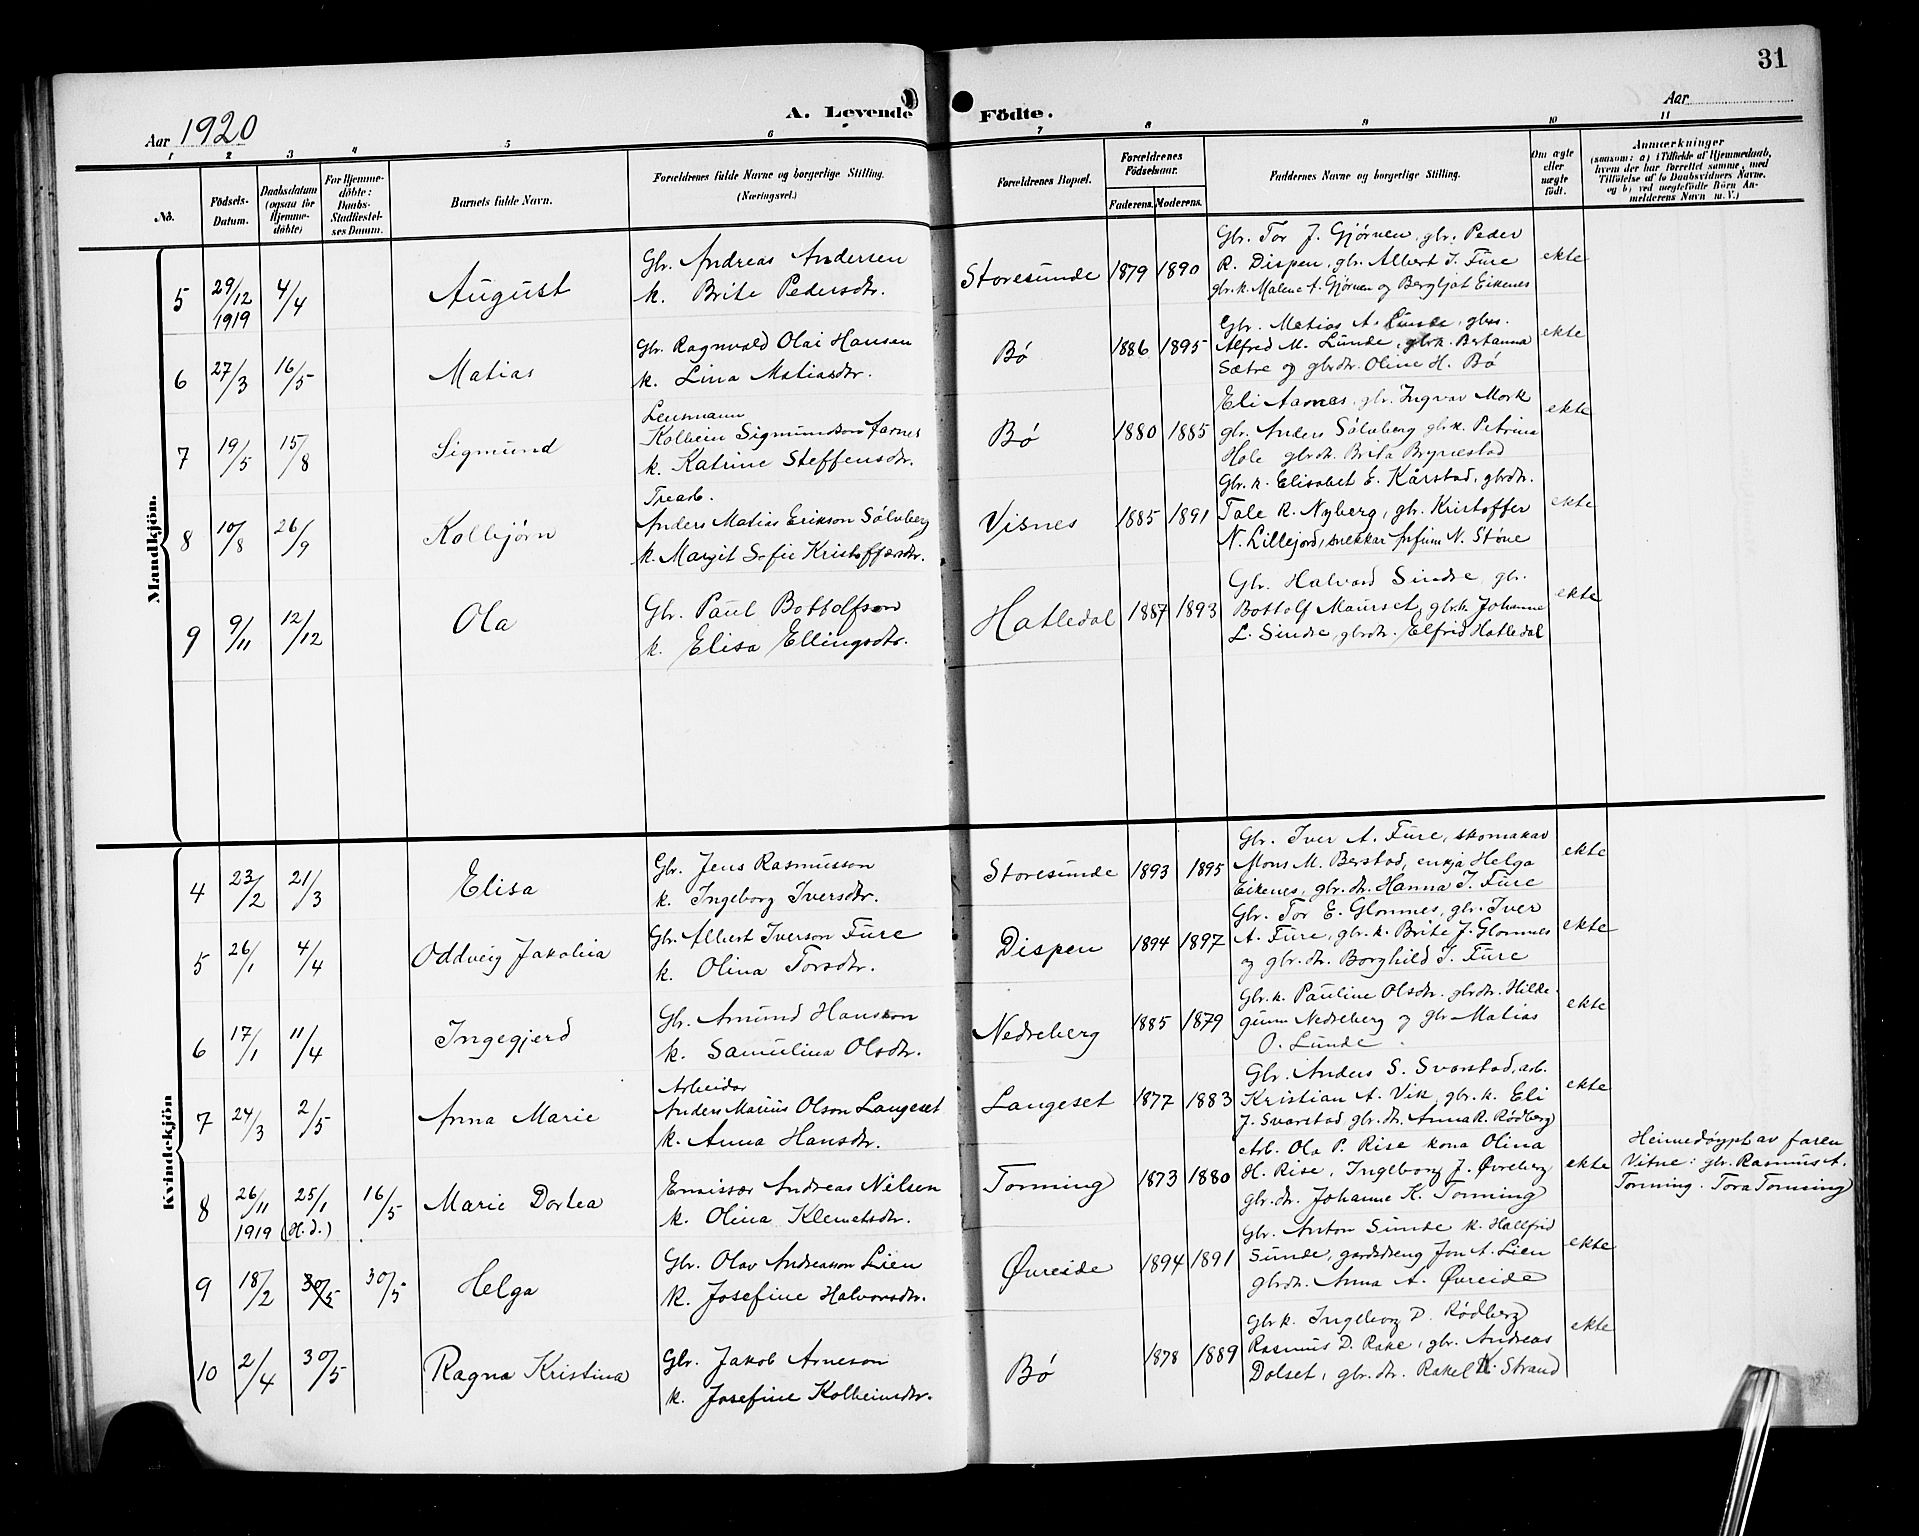 31
Aar 1920
A. Levende Födte.
Aar
1 2 3 4 5 6 7 8 9 10 11
No.
Födsels-Datum.
Daabsdatum (ogsaa for Hjemmedöbte)
For Hjemmedöbte: Daabs-Stadfæstelses Datum.
Barnets fulde Navn.
Forældrenes fulde Navne og borgerlige Stilling. (Næringsvei.)
Forældrenes Bopæl.
Forældrenes Födselsaar.
Faderens. Moderens.
Faddernes Navne og borgerlige Stilling.
Om ægte eller uægte født.
Anmærkninger
(saasom: a) i Tilfælde af Hjemmedaab,
hvem der har forrettet samme, med
Tilföielse af to Daabsvidners Navne,
og b) ved uægtefödte Börn An-
melderens Navn m. V.)
Mandkjön.
5 29/12 1919 4/4 August
Gbr. Andreas Andersen
k. Brite Pedersdtr.
Storesunde 1879 1890
Gbr. Tor J. Gjørnen, gbr. Peder
R. Dispen, gbr. Albert I. Fure
gbr.k. Malene A. Gjørnen og Bergljot Eikenes
ekte
6 27/3 16/5 Matias
Gbr. Ragnvald Olai Hansen
k. Lina Matiasdtr.
Bø 1886 1895
Gbr. Matias A. Lunde, gbrs.
Alfred M. Lunde, gbrk. Bertanna
Sætre og gbrdtr. Oline H. Bø
ekte
7 19/5 15/8 Sigmund
Lensmann
Kolbein Sigmundson Aarnes
k. Katrine Steffensdtr.
Bø 1880 1885
Eli Aarnes, gbr. Ingvar Mork
gbr. Anders Sølvberg gbr.k. Petrina
Hole gbrdtr. Brita Bryræstad
ekte
8 10/8 26/9 Kolbjørn
Trearb.
Anders Matias Erikson Sølvberg
k. Margit Sofie Kristoffersdtr.
Visnes 1885 1891
Gbr. k. Elisabet E. Kårstad, gbrdtr.
Tale R. Nyberg, gbr. Kristoffer
N. Lillejord, snekkar N. Støve
ekte
9 9/11 12/12 Ola
Gbr. Paul Bottolfson
k. Elisa Ellingsdtr.
Hatledal 1887 1893
Gbr. Halvard Sindre, gbr.
Bottolf Maurset, gbr.k. Johanne
L. Sindre, gbrdtr. Elfrid Hatledal
ekte
Kvindekjön
4 23/2 21/3 Elisa
Gbr. Jens Rasmusson
k. Ingeborg Iversdtr.
Storesunde 1893 1895
Gbr. Iver A. Fure, skomakar
Mons M. Berstad, enkja Helga
Eikenes, gbr.dtr. Hanna I. Fure
ekte
5 26/1 4/4 Oddveig Jakobina
Gbr. Albert Iverson Fure
k. Olina Torsdtr.
Dispen 1894 1897
Gbr. Tor E. Glomnes, gbr. Iver
A. Fure, gbr. k. Brite J. Glomnes
og gbr.dtr. Borghild I. Fure
ekte
6 17/1 11/4 Ingegjerd
Gbr. Amund Hansson
k. Samulina Olsdtr.
Nedreberg 1885 1879
Gbr.k. Pauline Olsdtr. gbrdtr. Hilde-
gunn Nedreberg og gbr. Matias
O. Lunde
ekte
7 24/3 2/5 Anna Marie
Arbeidar
Anders Marius Olson Langeset
k. Anna Hansdtr.
Langeset 1877 1883
Gbr. Anders S. Svarstad, arb.
Kristian A. Vik, gbr. k. Eli
J. Svarstad gbr.dtr. Anna R. Rødberg
ekte
8 26/11 1919 25/1 (H.d.) 16/5 Marie Dortea
Emissær Andreas Nilsen
k. Olina Klemetsdtr.
Tonning 1873 1880
Arb. Ola P. Rise kona Olina
H. Rise, Ingeborg J. Øvreberg
gbr.dtr. Johanne K. Tonning
ekte
Heimedøypt av faren
Vitne: gbr. Rasmus A.
Tonning. Tora Tonning
9 18/2 30/5 30/5 Helga
Gbr. Olav Andreasson Lien
k. Josefine Halvorsdtr.
Øvreide 1894 1891
Gbr. Anton Sunde k. Hallfrid
Sunde, gardsdreng Jon A. Lien
gbrdtr. Anna A. Øvreide
ekte
10 2/4 30/5 Ragna Kristina
Gbr. Jakob Arneson
k. Josefine Kolbeinsdtr.
Bø 1878 1889
Gbr k. Ingeborg D. Rødberg
Rasmus D. Rake, gbr. Andreas
Dolset, gbr.dtr. Rakel K. Strand
ekte